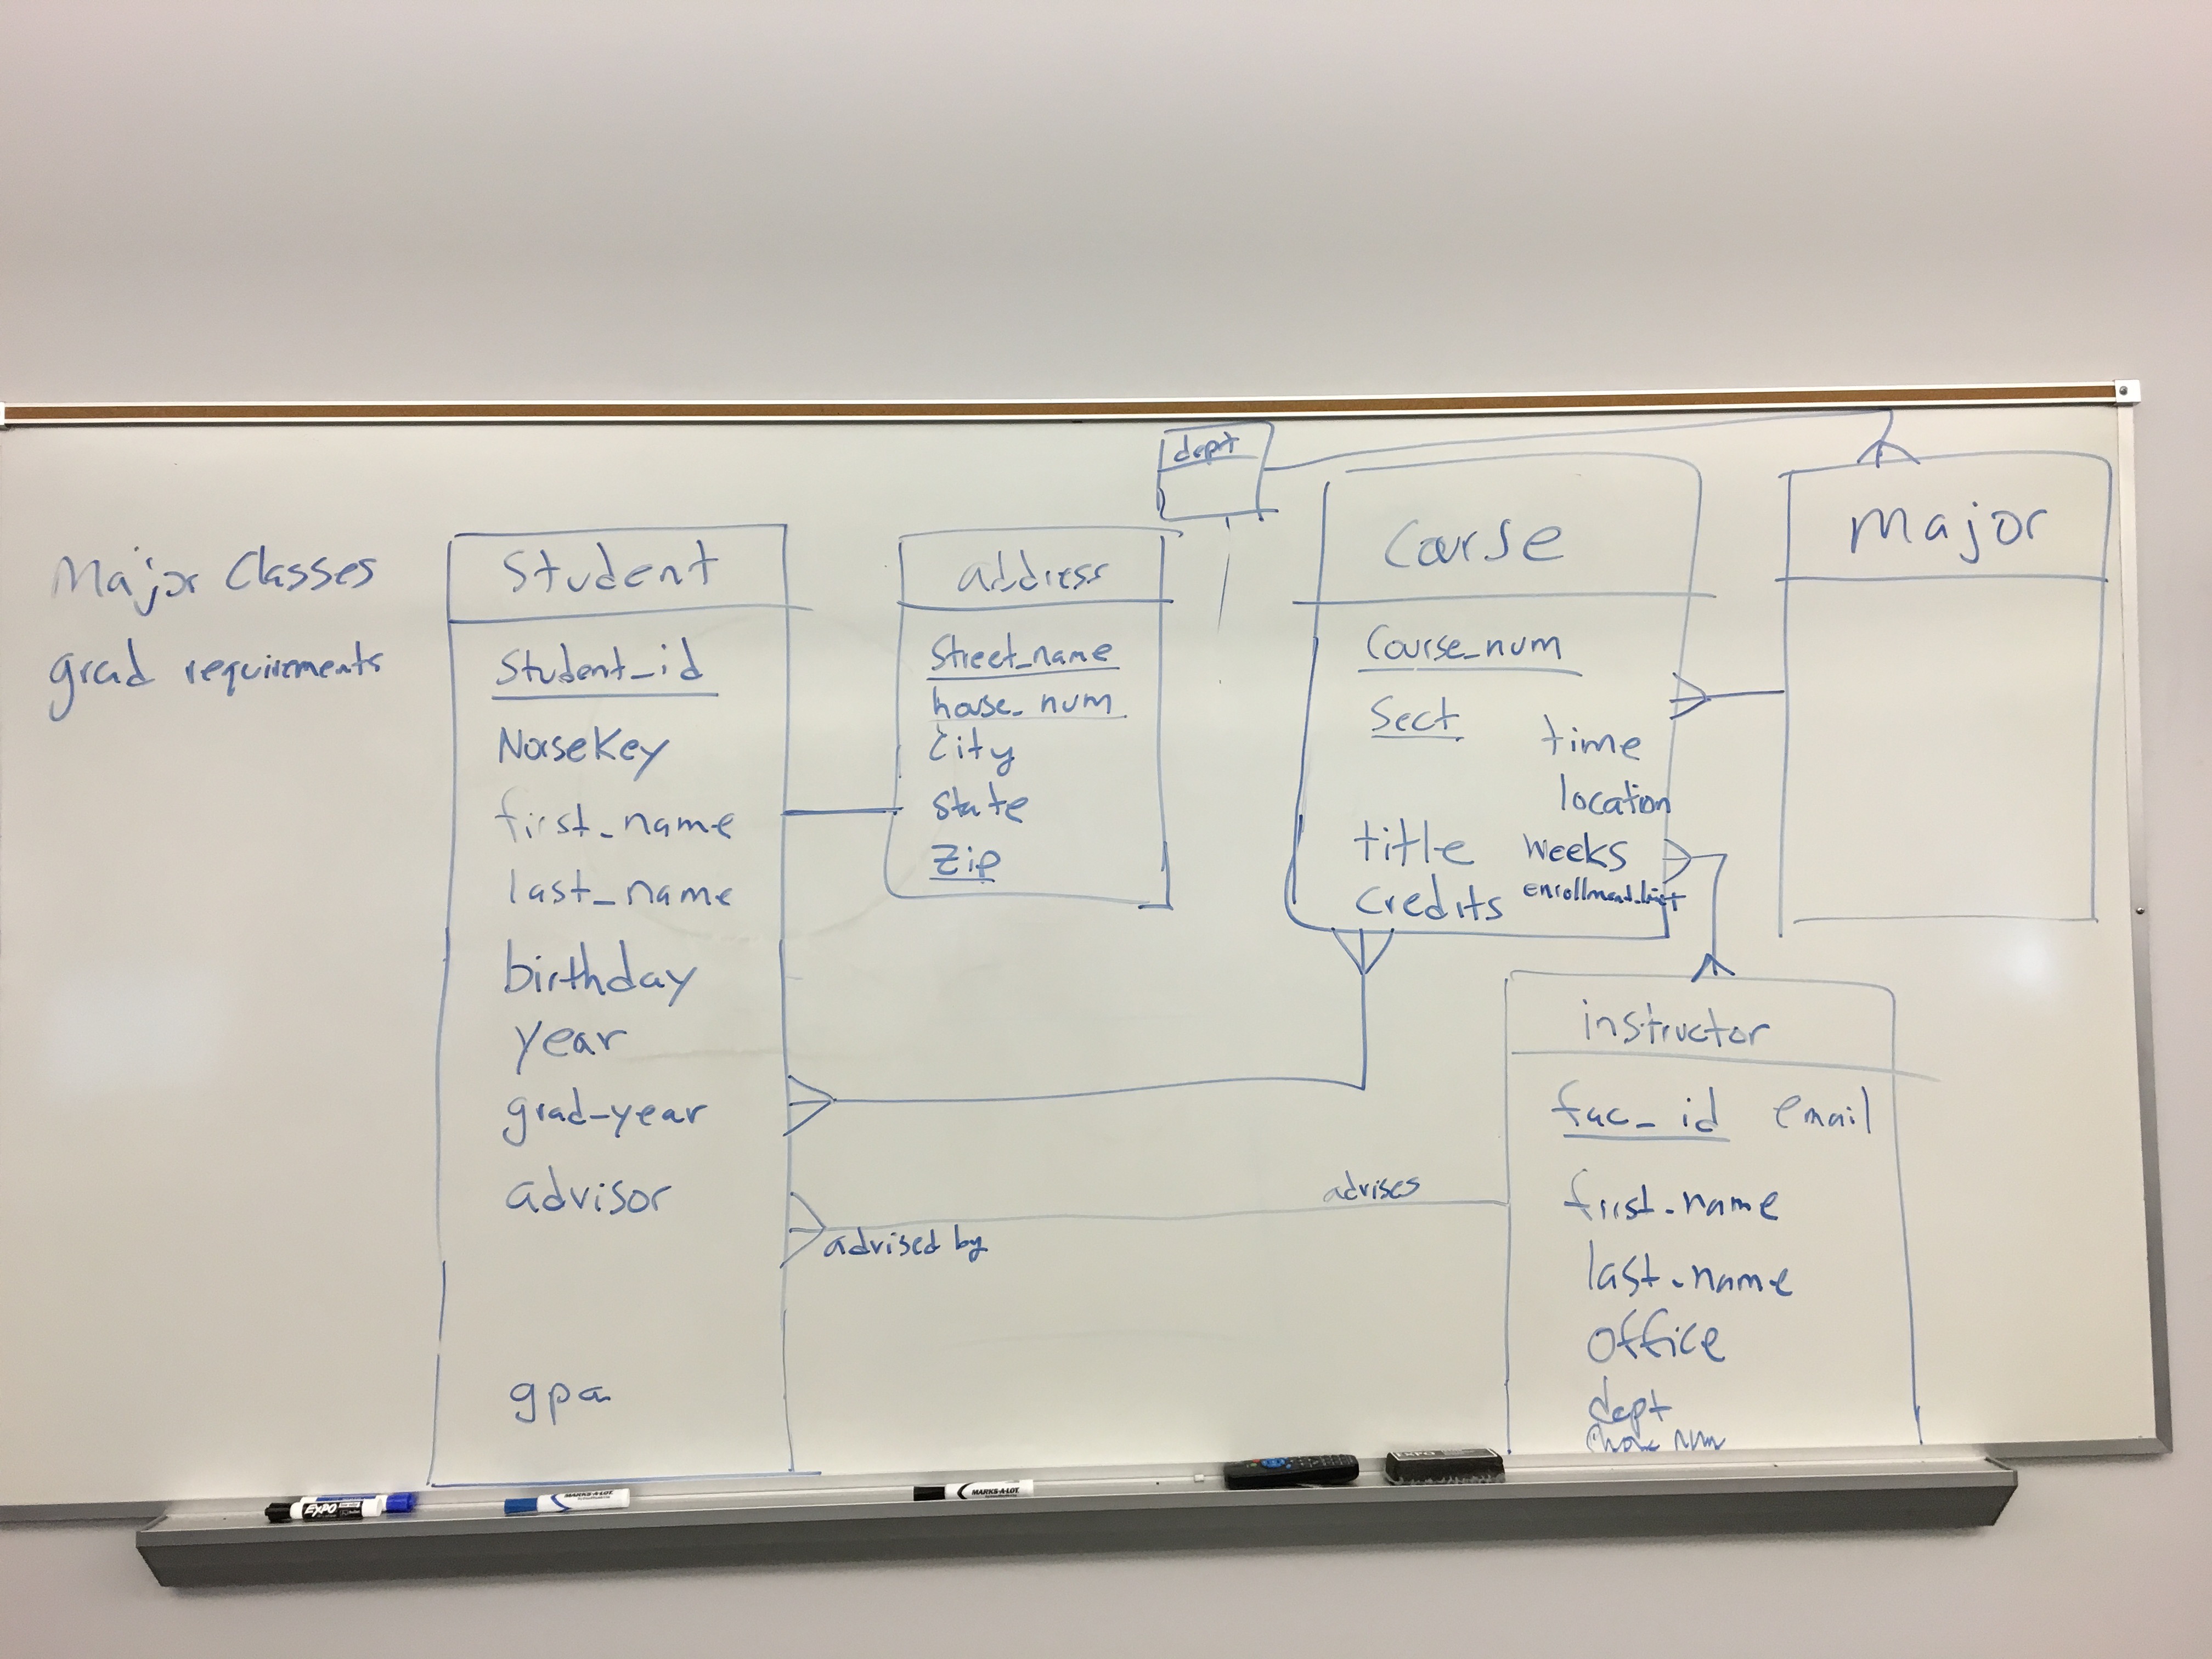 Major Classes
grad requirements
Student
Student_id
NorseKey
first_name
last_name
birthday
year
grad-year
advisor
gpa
address
Street_name
house_num
City
State
Zip
dept
Course
Course_num
Sect
time
location
title
weeks
credits
enrollment_limit
Major
instructor
fac_id
email
first_name
last_name
office
dept
phone num
advises
advised by
EXPO
MARKS-A-LOT
MARKS-A-LOT
EXPO